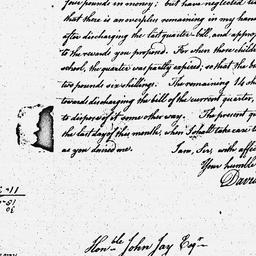 four pounds in money; but have neglected
that there is an overplus remaining in my han
after discharging the last quarter bill, and approp
to the rewards you proposed. For when these childre
school, the quarter was partly expired, so that the b
two pounds six shillings. The remaining 14 sh
towards discharging the bill of the current quarter,
to dispose of it some other way. The present q
the last day of this month, when I shall take care t
as you desired me.
I am, Sir, with affec
Your humble
David
Hon.ble John Jay Esqr